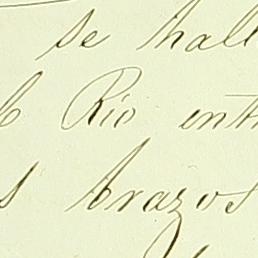 se hall
Rio ent
brazos